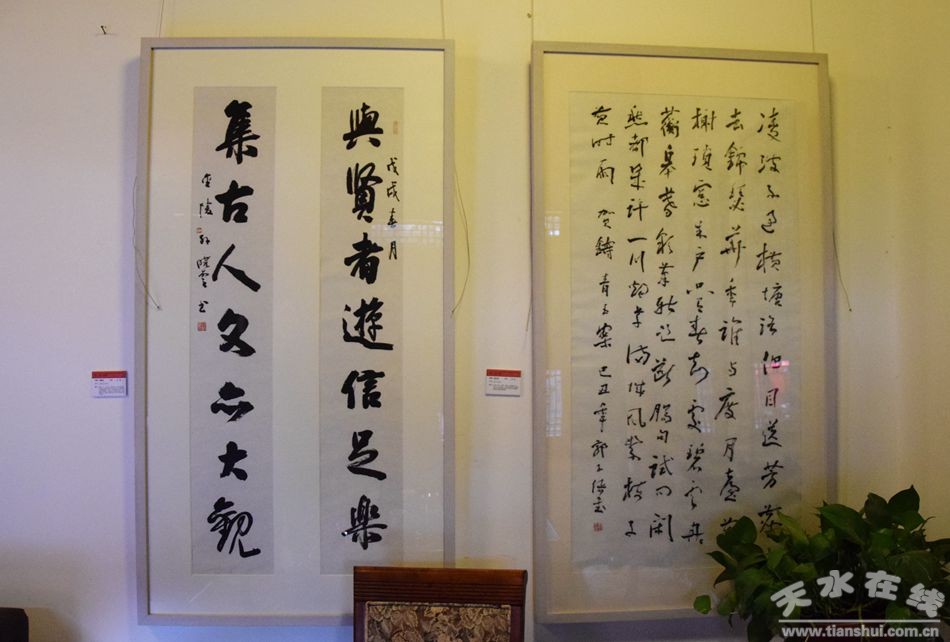 與賢者遊信足樂
戊戌春月
集古人文亦大觀
金陵孫曉雲书
凌波不过横塘路但目送芳尘
去錦瑟華年誰与度月臺花
榭瑣窓朱户只有春知處碧雲冉
蘅皋暮彩筆新題斷腸句試问闲
愁都几许一川烟草满城风絮梅子
黄时雨 贺铸青玉案 己丑年
天水在线
www.tianshui.com.cn